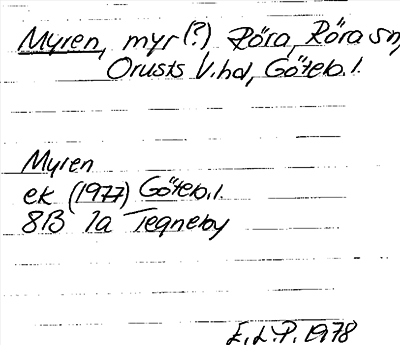 Myren, myr (?) Röra, Röra sn,
Orusts V. hd, Göteb. l.
Myren
ek (1977) Göteb. l.
8B 1a Tegneby
E.L.P. 1978